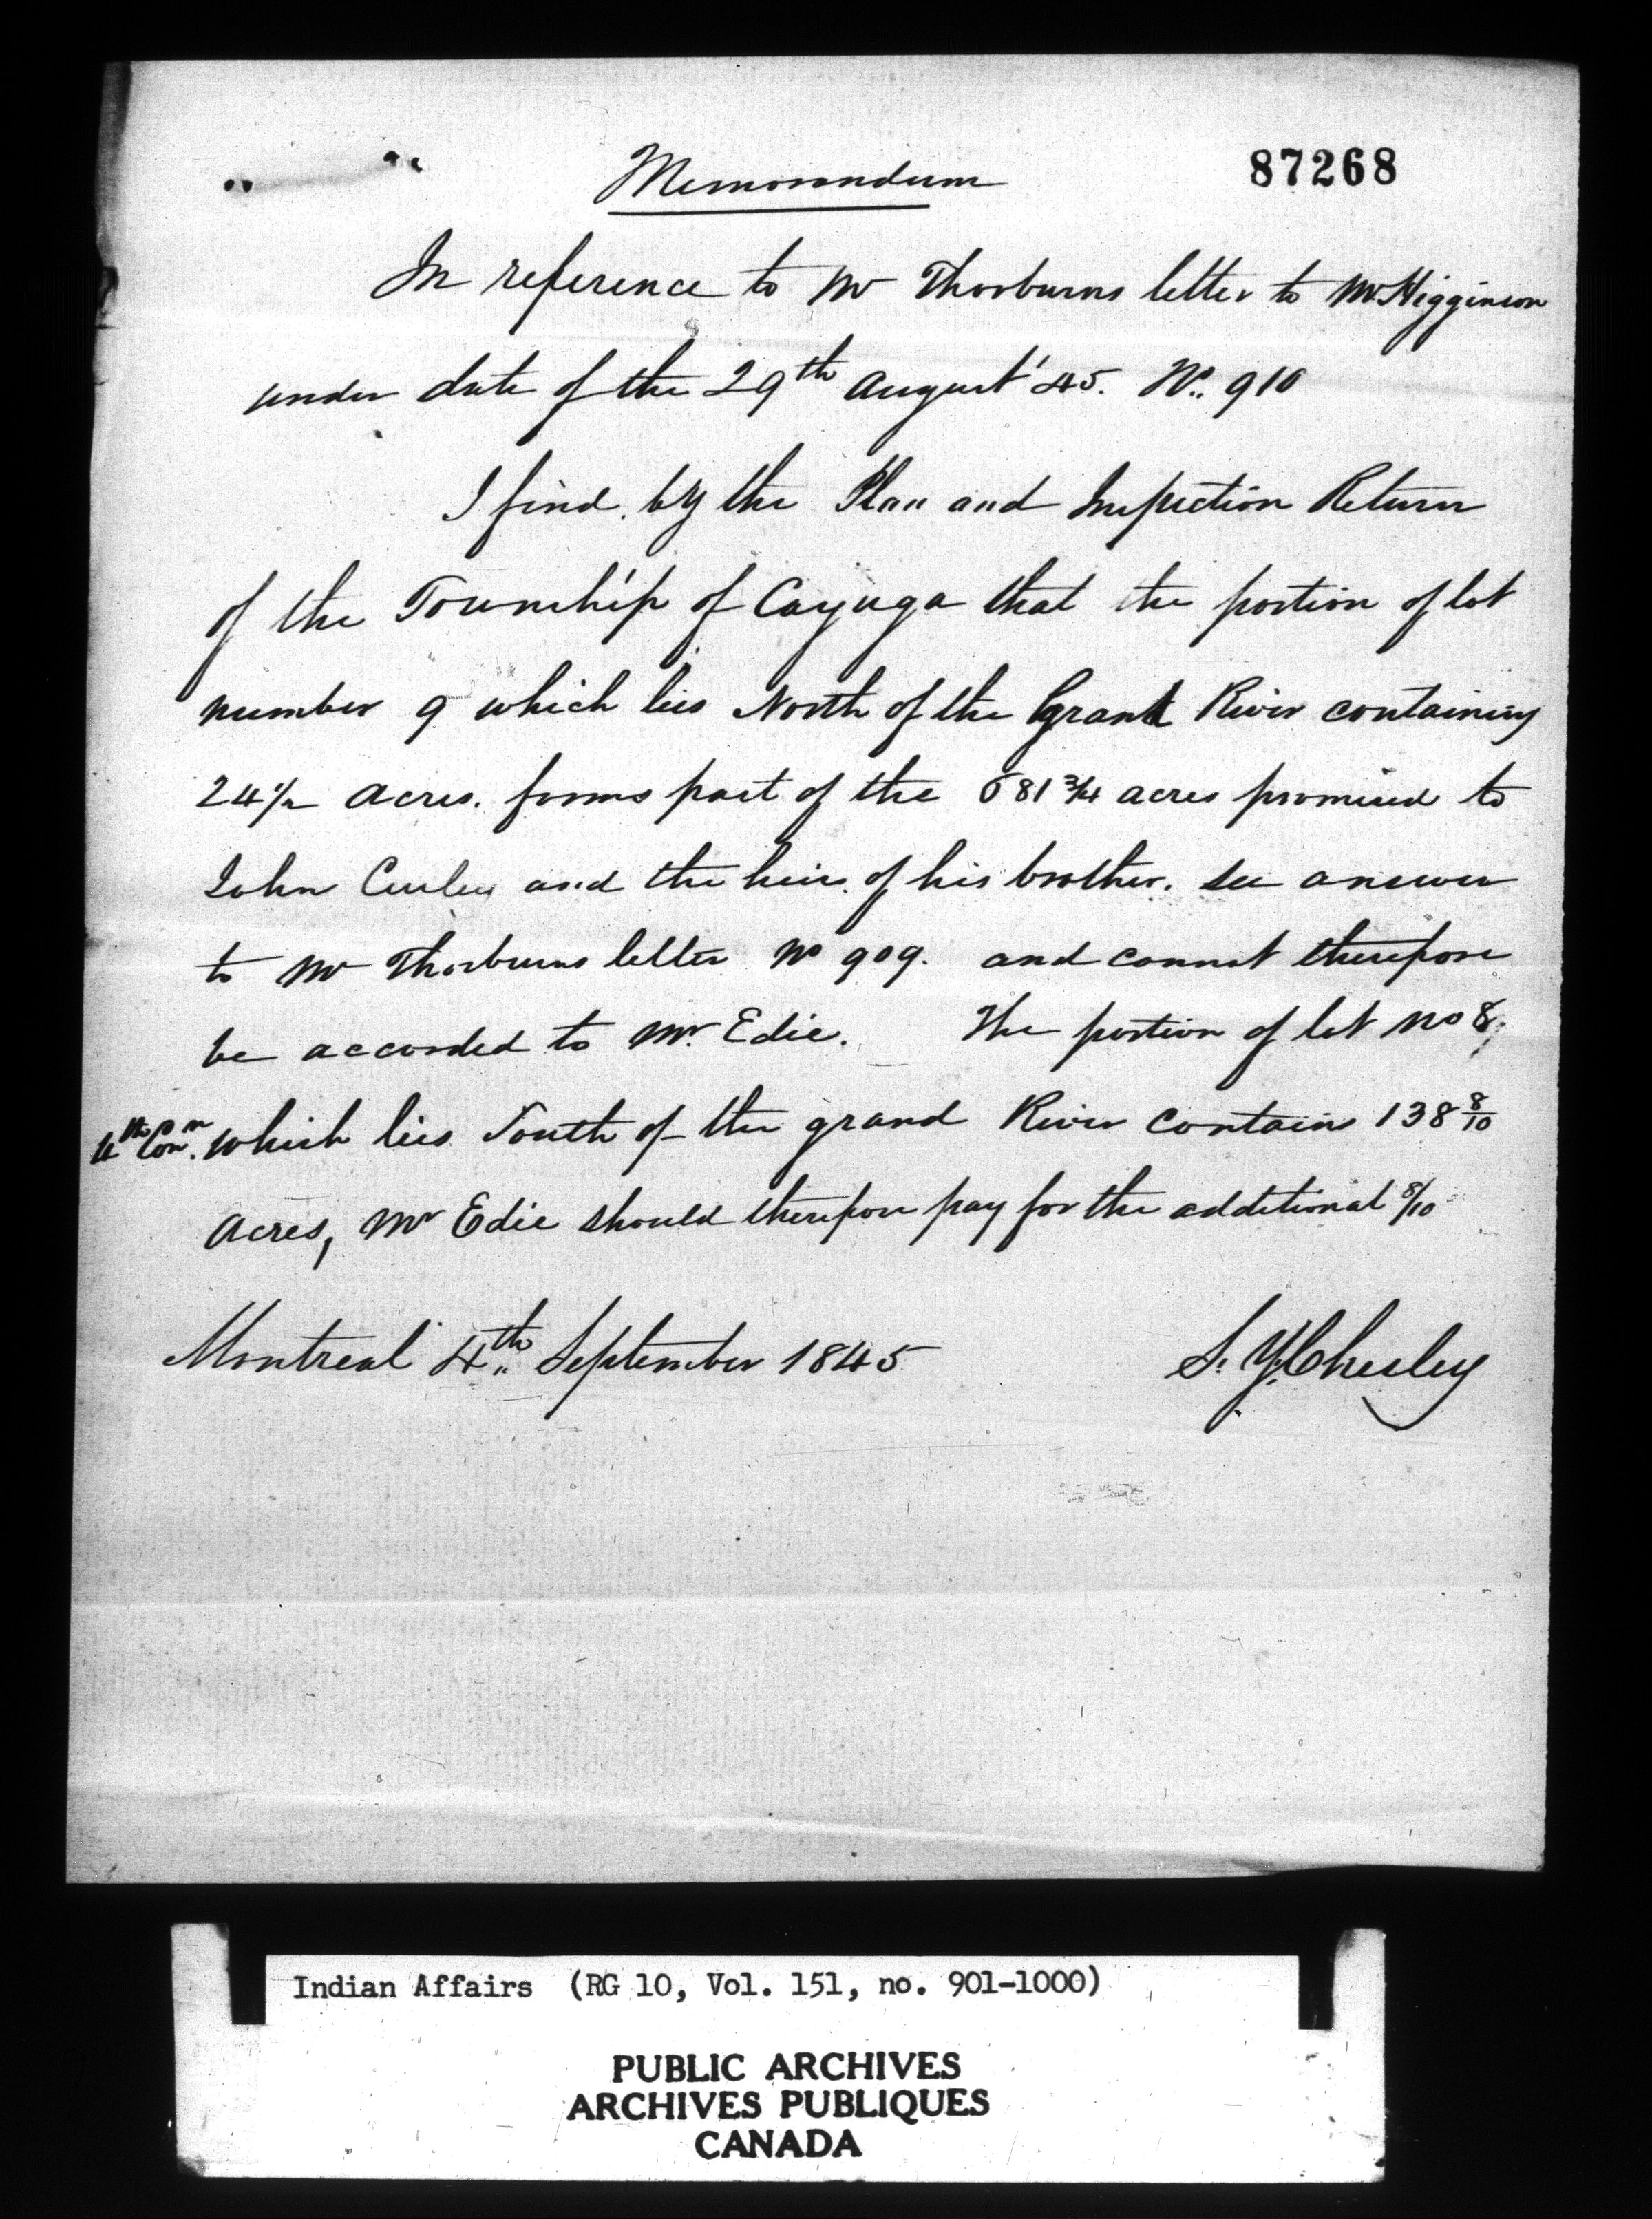 87268
Memorandum
In reference to Mr Thorburns letter to Mr Higginson
under date of the 29th August '45. No. 910
I find by the Plan and Inspection Return
of the Township of Cayuga that the portion of lot
number 9 which lies North of the Grand River containing
24 1/2 acres. forms part of the 681 3/4 acres promised to
John and the heirs of his brother. see answer
to Mr Thorburns letter No 909. and cannot therefore
be accorded to Mr. Edie. The portion of lot no 8,
4th Conn. which lies South of the grand River contain 138 8/10
Acres, Mr Edie should therefore pay for the additional 8/10
Montreal 4th September 1845
S. Y. Chesley
Indian Affairs (RG 10, Vol. 151, no. 901-1000)
PUBLIC ARCHIVES
ARCHIVES PUBLIQUES
CANADA